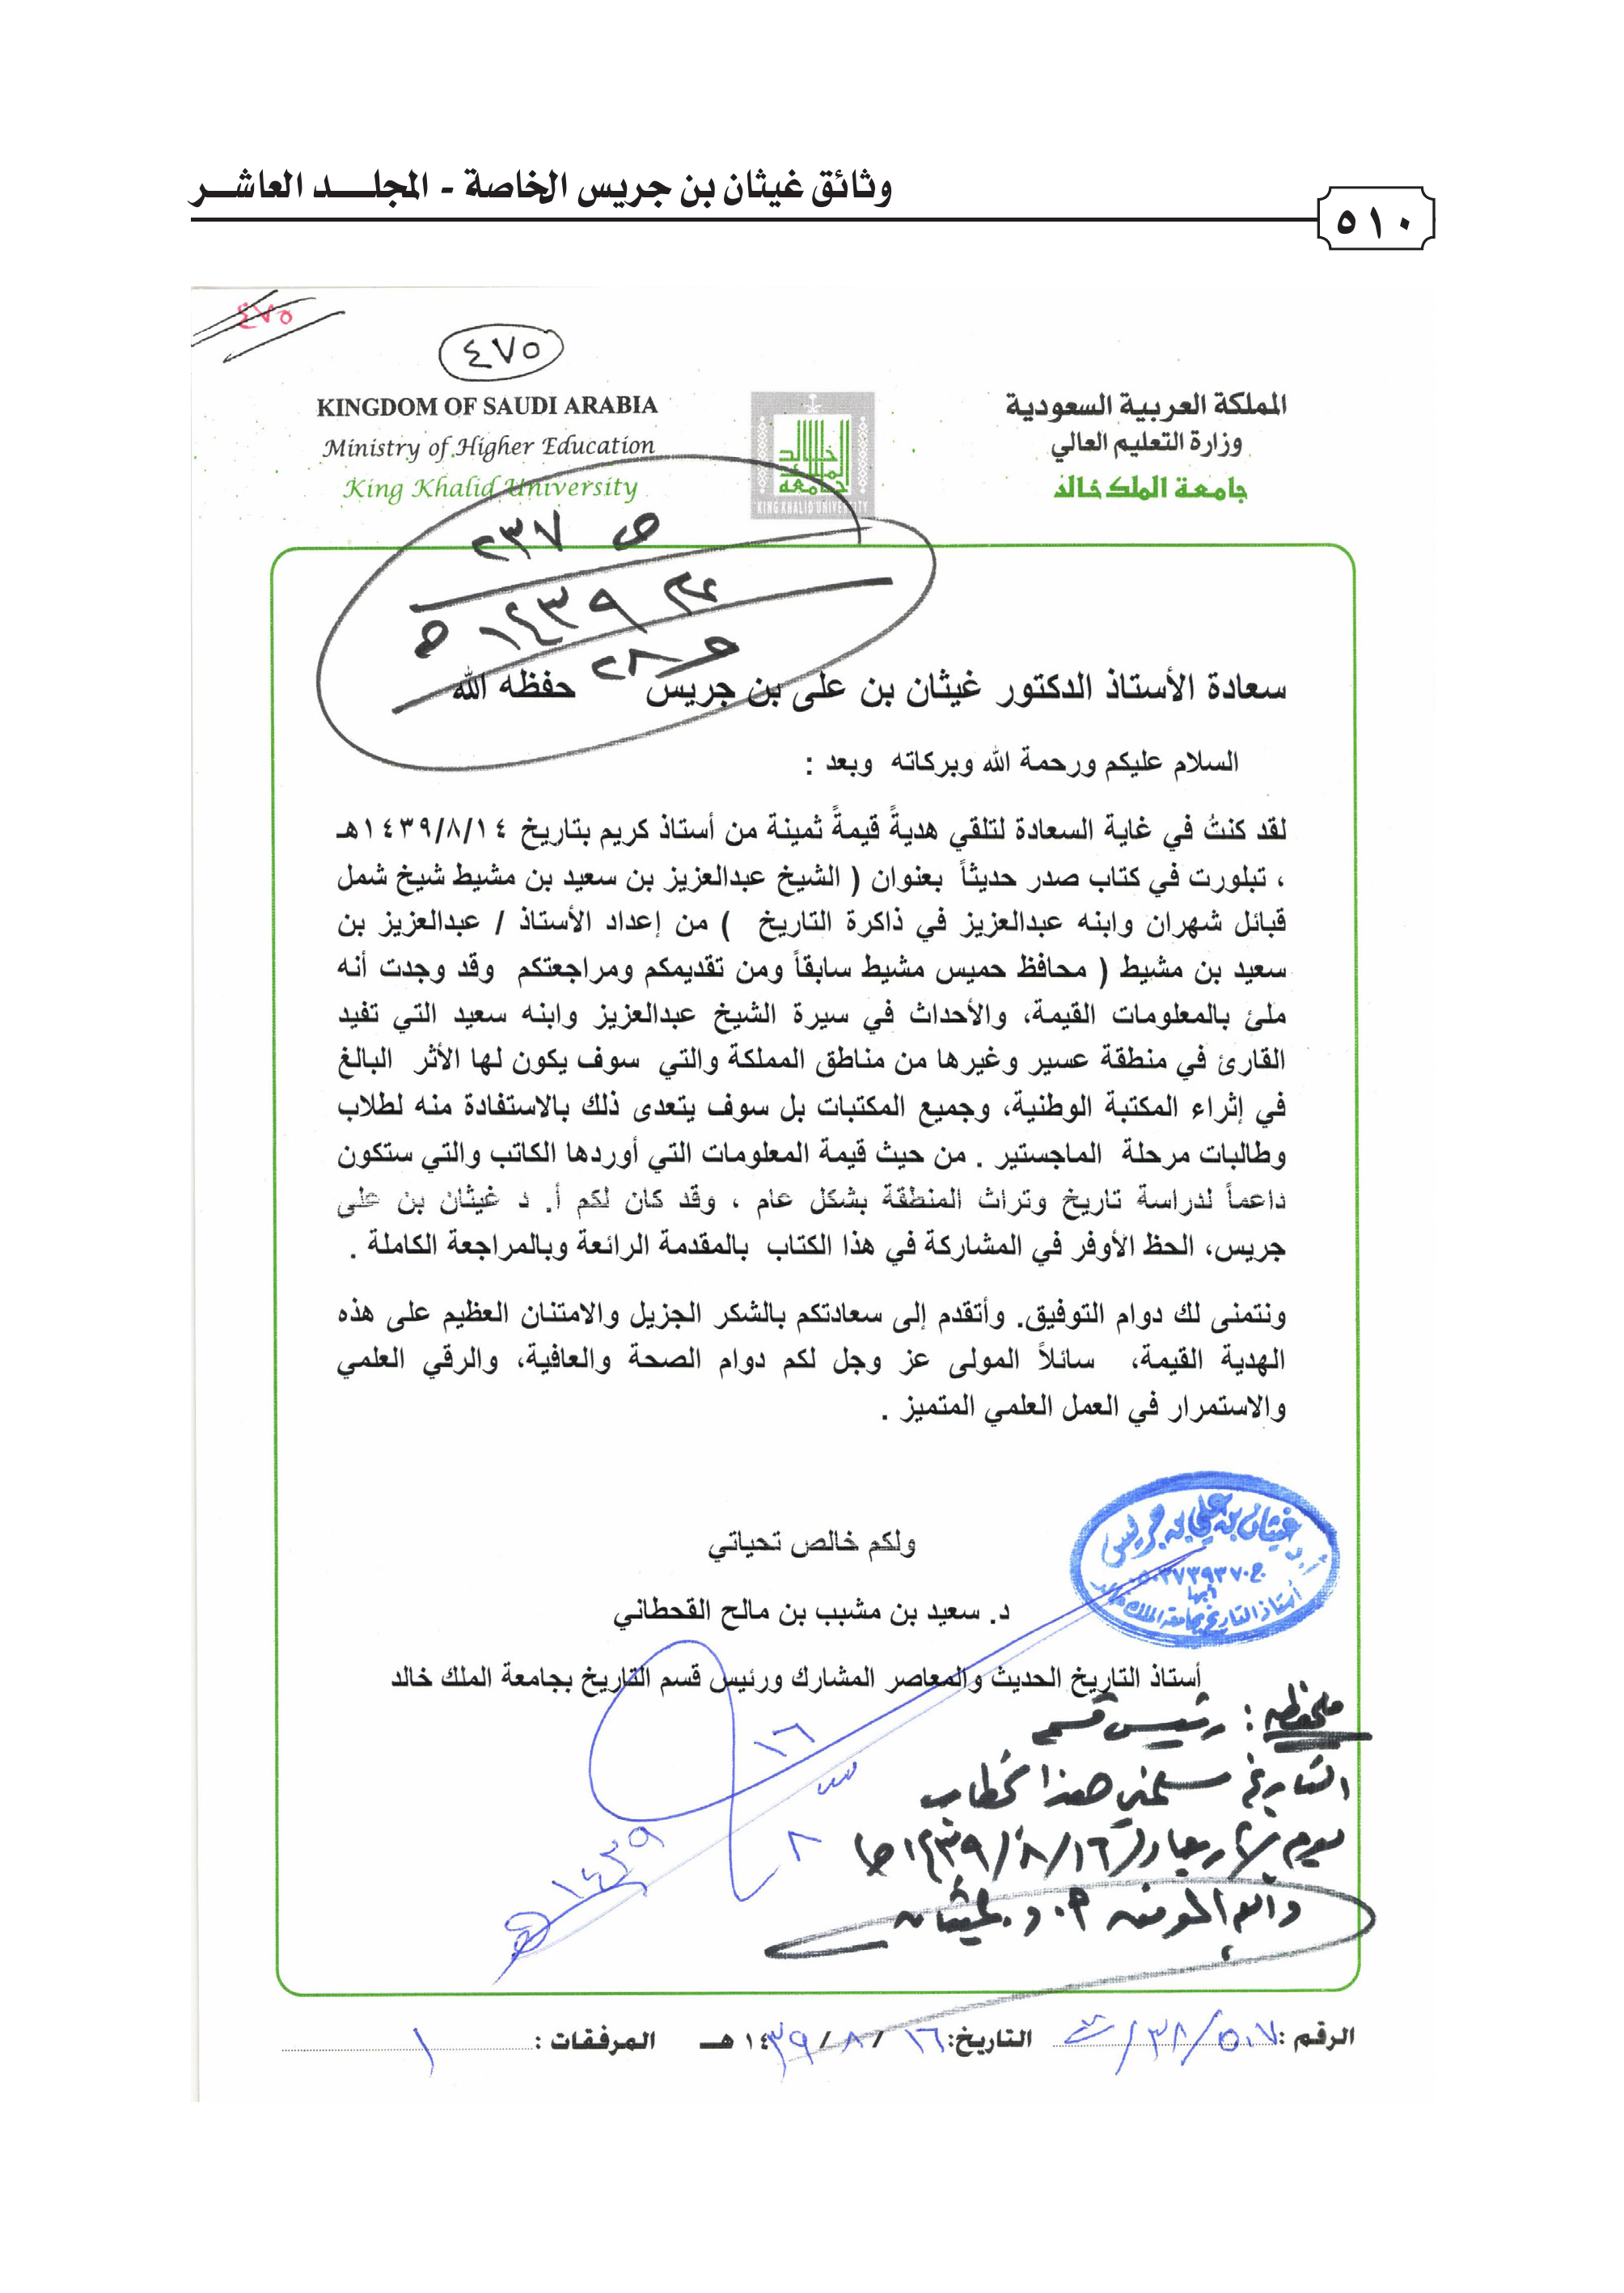 وثائق غيثان بن جريس الخاصة - المجلــد العاشــر
٥١٠
٤٧٥
٤٧٥
KINGDOM OF SAUDI ARABIA
Ministry of Higher Education
King Khalid University
المملكة العربية السعودية
وزارة التعليم العالي
جامعة الملك خالد
خالد
الملك
جامعة
KING KHALID UNIVERSITY
ص ٢٣٧
١٤٣٩ هـ
ج ٢٨
سعادة الأستاذ الدكتور غيثان بن على بن جريس حفظه الله
السلام عليكم ورحمة الله وبركاته وبعد :
لقد كنتُ في غاية السعادة لتلقي هديةً قيمةً ثمينة من أستاذ كريم بتاريخ ١٤٣٩/٨/١٤هـ
، تبلورت في كتاب صدر حديثاً بعنوان ( الشيخ عبدالعزيز بن سعيد بن مشيط شيخ شمل
قبائل شهران وابنه عبدالعزيز في ذاكرة التاريخ ) من إعداد الأستاذ / عبدالعزيز بن
سعيد بن مشيط ( محافظ حميس مشيط سابقاً ومن تقديمكم ومراجعتكم وقد وجدت أنه
ملئ بالمعلومات القيمة، والأحداث في سيرة الشيخ عبدالعزيز وابنه سعيد التي تفيد
القارئ في منطقة عسير وغيرها من مناطق المملكة والتي سوف يكون لها الأثر البالغ
في إثراء المكتبة الوطنية، وجميع المكتبات بل سوف يتعدى ذلك بالاستفادة منه لطلاب
وطالبات مرحلة الماجستير . من حيث قيمة المعلومات التي أوردها الكاتب والتي ستكون
داعماً لدراسة تاريخ وتراث المنطقة بشكل عام ، وقد كان لكم أ. د غيثان بن على
جريس، الحظ الأوفر في المشاركة في هذا الكتاب بالمقدمة الرائعة وبالمراجعة الكاملة .
ونتمنى لك دوام التوفيق. وأتقدم إلى سعادتكم بالشكر الجزيل والامتنان العظيم على هذه
الهدية القيمة، سائلاً المولى عز وجل لكم دوام الصحة والعافية، والرقي العلمي
والاستمرار في العمل العلمي المتميز .
أ.د غيثان بن علي بن جريس
أبها
أستاذ التاريخ بجامعة الملك خالد
ولكم خالص تحياتي
د. سعيد بن مشبب بن مالح القحطاني
أستاذ التاريخ الحديث والمعاصر المشارك ورئيس قسم التاريخ بجامعة الملك خالد
١٦
٨
١٤٣٩
ملحوظه : رئيس قسم
التاريخ سلمني هذا الخطاب
يوم الأربعاء (١٤٣٩/٨/١٦هـ)
والله الموفق أ. د. غيثان
الرقم : ٣٨/٥٠٧/ التاريخ: ١٦ / ٨ / ١٤٣٩ هـ المرفقات : ١